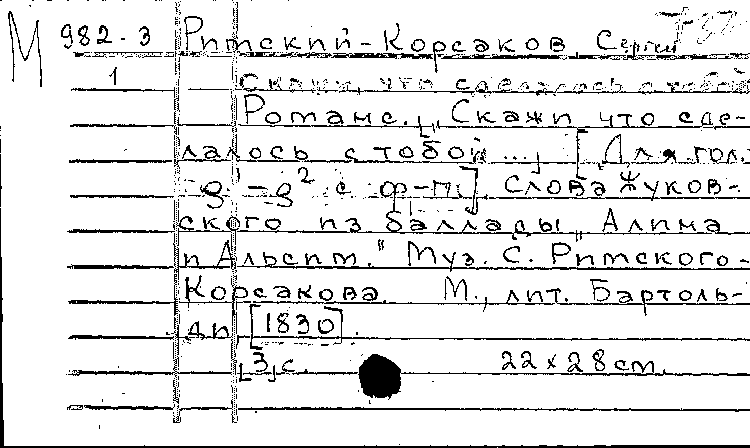 М 982-3 Римский-Корсаков, Сергей
1 Скажи, что сделалось с тобой
Романс. „Скажи что сде-
лалось с тобой...„ [Для гол.
g¹-g² с ф-п]. Слова Жуков-
ского из баллады „Алина
и Альсим." Муз. С. Римского-
Корсакова. М., лит. Бартоль-
ди, [1830].
3 с. 22 x 28 см.